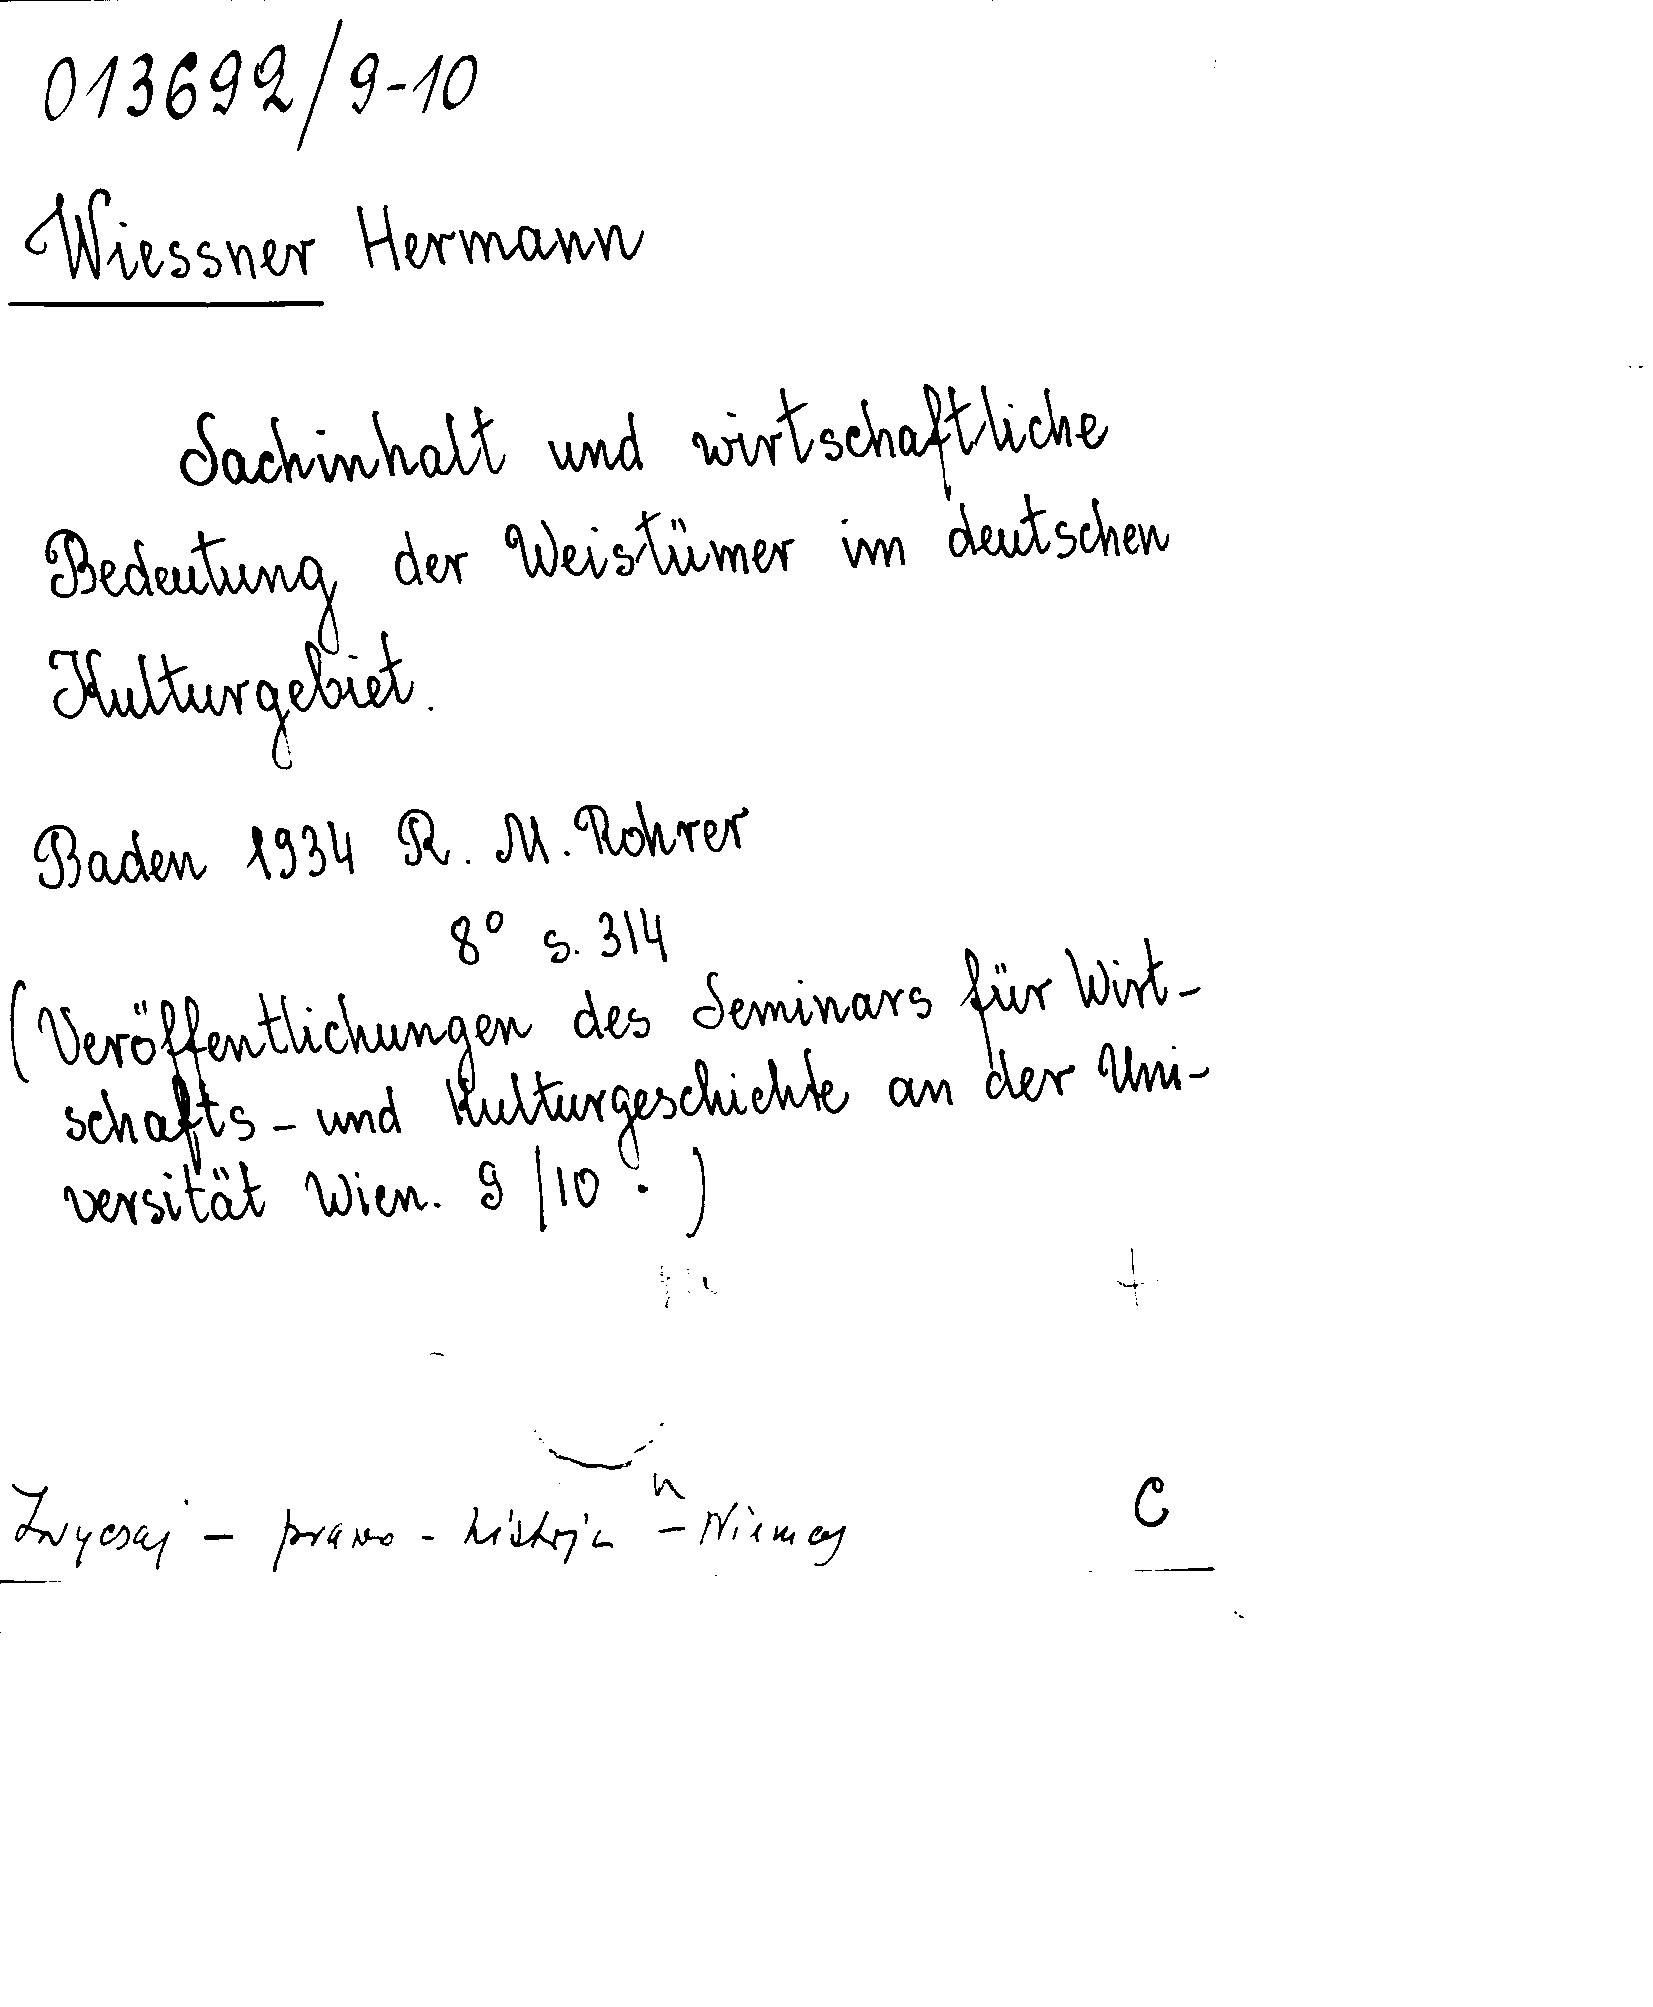 013692/9-10
Wiessner Hermann
Sachinhalt und wirtschaftliche
Bedeutung der Weistümer im deutschen
Kulturgebiet.
Baden 1934 R. M. Rohrer
8° s. 314
(Veröffentlichungen des Seminars für Wirt-
schafts - und Kulturgeschichte an der Uni-
versität Wien. 9/10.)
n
Zwyczaj - prawo - historja - Niemcy
C